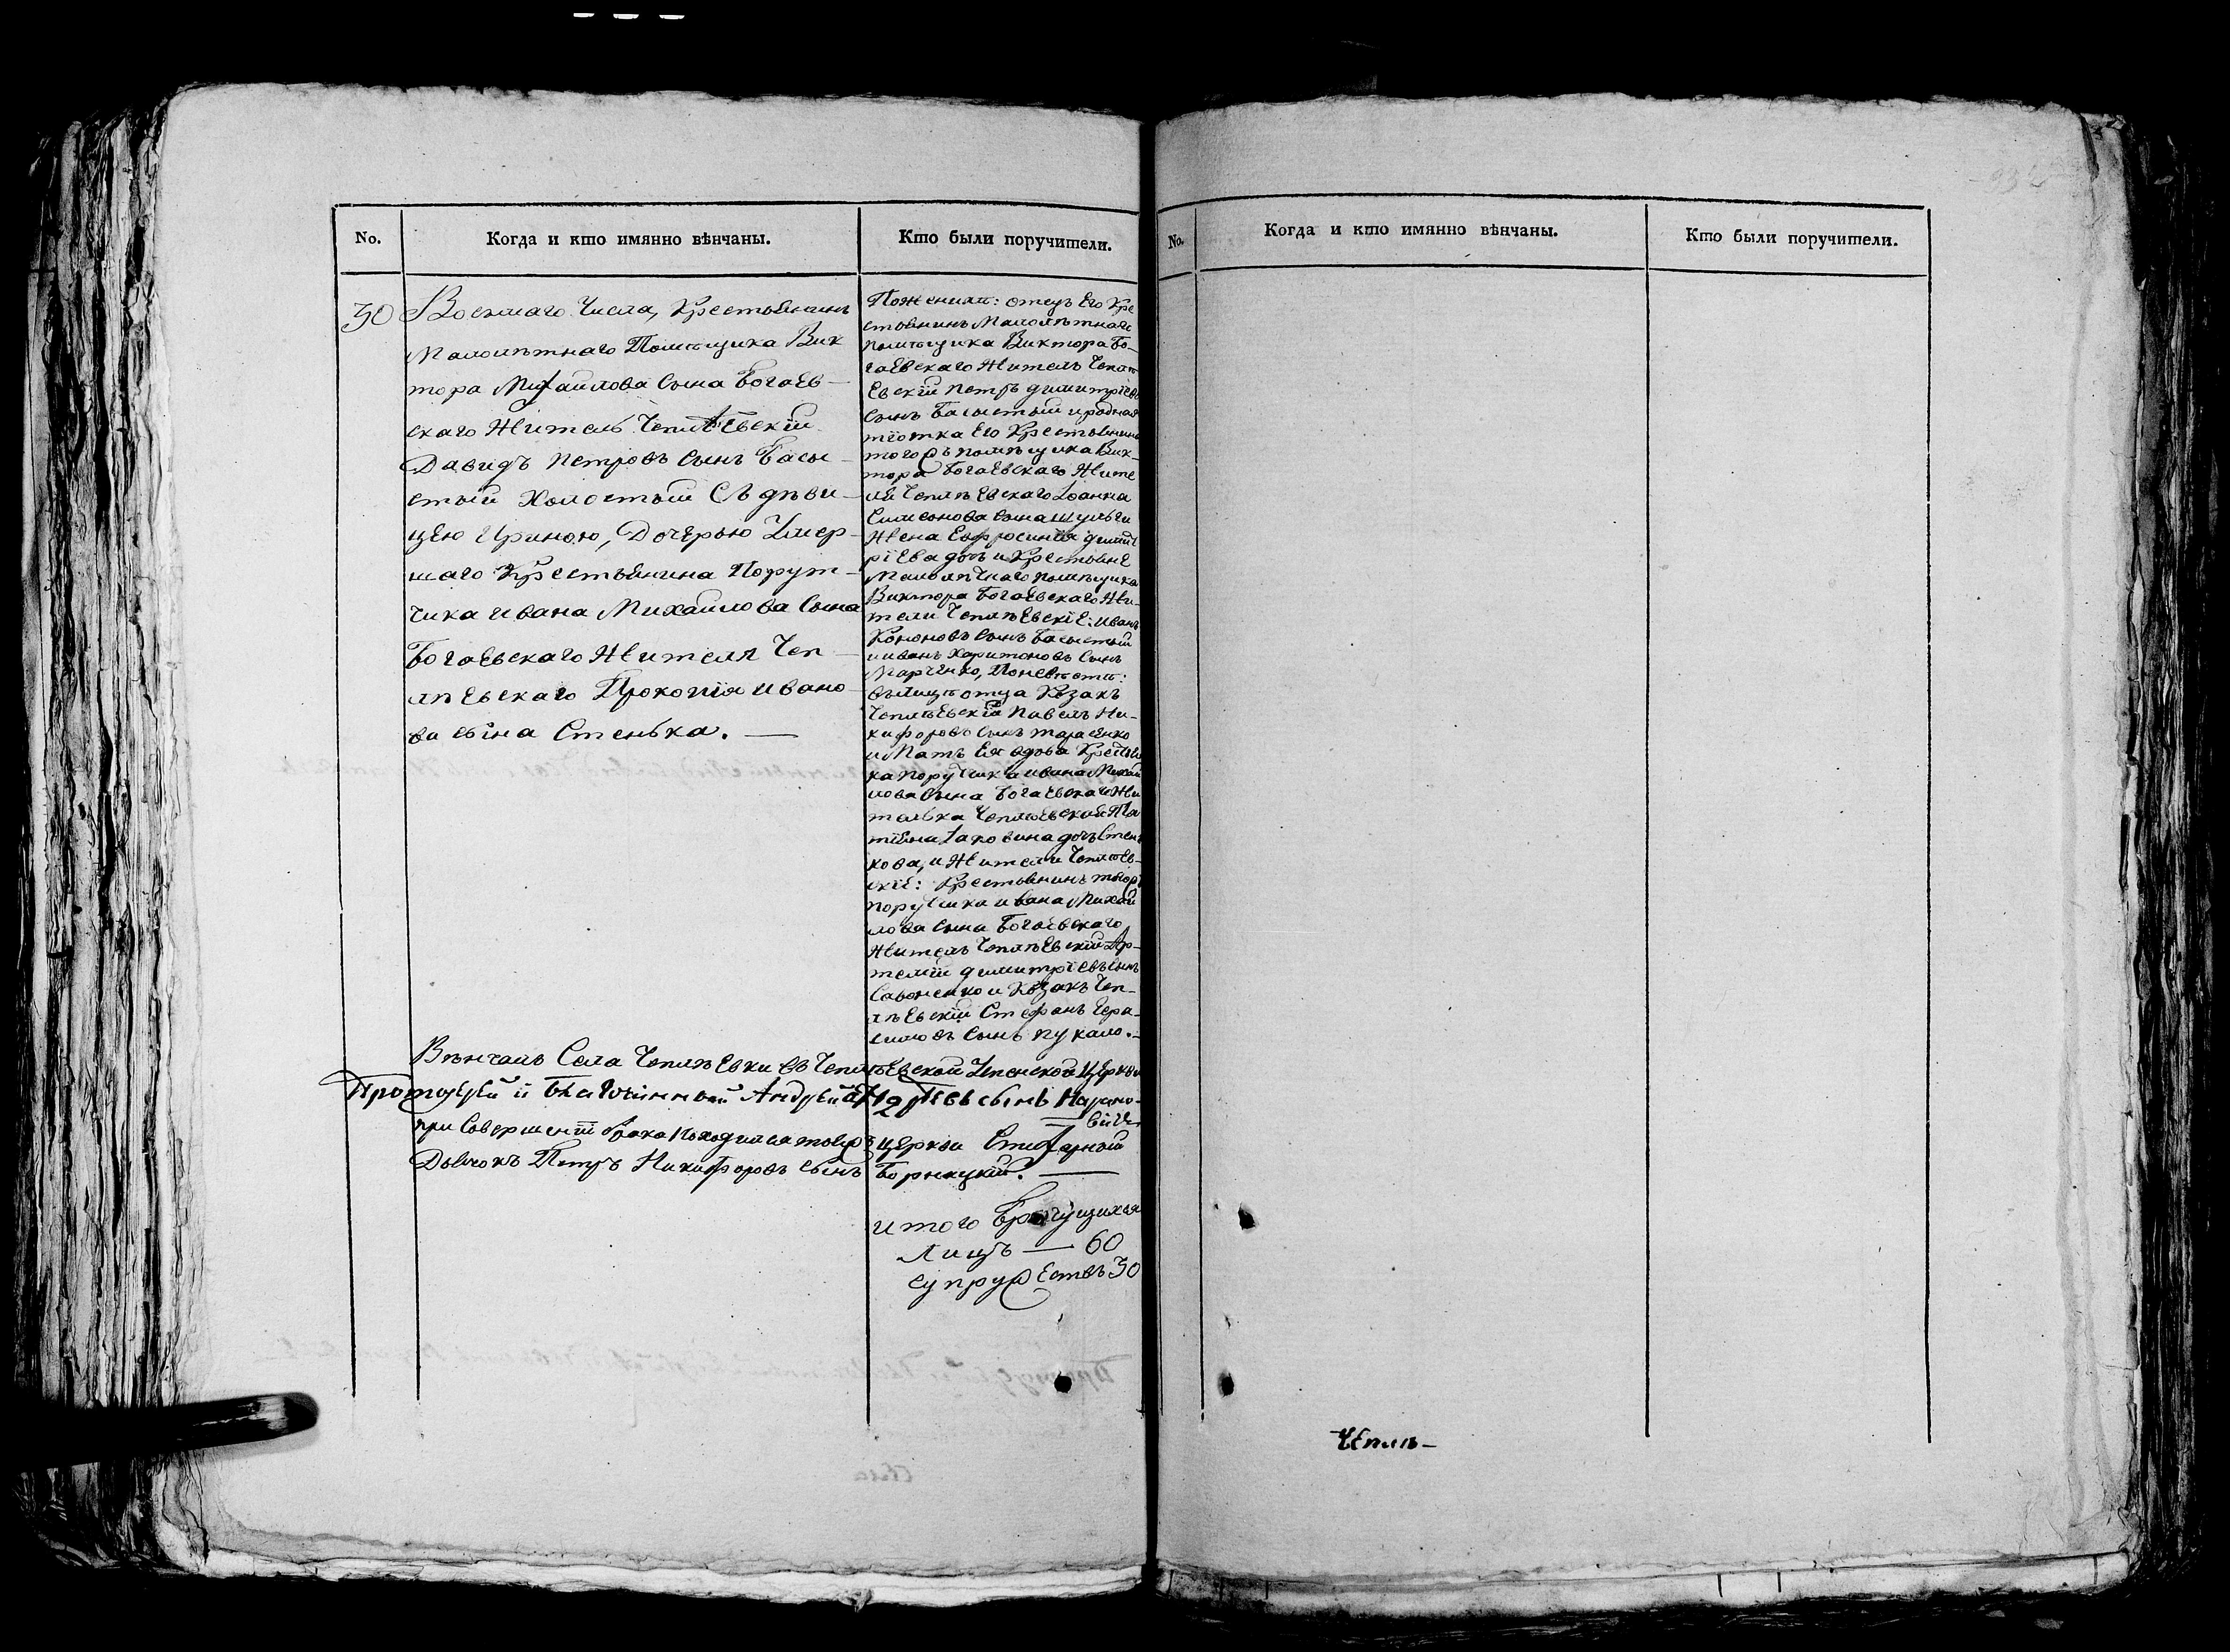 No.
Когда и кто имянно вѣнчаны.
Кто были поручители.
30
Восмаго Числа, Крестьянинъ
Малолѣтнаго Помѣщика Вик
тора Михайлова Сына Богаев-
скаго Житель Чеплѣевскій
Давидъ Петровъ Сынъ Басы-
стый Холостый Съ дѣви-
цею Ириною, Дочерью Умер-
шаго Крестьянина Порут-
чика Ивана Михайлова Сына
Богаевскаго Жителя Чеп-
лѣевскаго Прокопія Ивано-
ва сына Стенька.
По женихѣ: отецъ Его Кре
стьянинъ Малолѣтнаго
помѣщика Виктора Бо-
гаевскаго Житель Чеплѣ
Евскій Петръ димитріевъ
Сынъ Басыстый и родная
тіотка Его Крестьянина
тогожъ помѣщика Вик-
тора Богаевскаго Жите
ля Чеплѣевскаго Іоанна
Симеонова сына Шульги
Жена Ефросинія димит
ріева дочь и Крестьяне
Малолѣтнаго помѣщика
Виктора Богаевскаго Жи-
тели Чеплѣевскіе: Иванъ
Кононовъ сынъ Басыстый
и иванъ Харитоновъ Сынъ
Марченко, По невѣстѣ:
въ лицѣ отца Козакъ
Чеплѣевскій Павелъ Ни-
кифоровъ сынъ тарасенко
и Мать Ея вдова Крестьян
ка порутчика ивана Михай
лова Сына Богаевскаго Жи
телька Чеплѣевская Та
тіяна Іаковлна дочь Стень
кова, и Жители Чеплѣев-
скіе: Крестьянинъ тогожъ
порутчика ивана Михай
лова Сына Богаевскаго
Житель Чеплѣевскій Ар-
темій димитріевъ сынъ
Савоненко и Козакъ Чеп-
лѣевскій Стефанъ Гера-
симовъ Сынъ пукало.
Вѣнчалъ Села Чеплѣевки въ Чеплѣевской Успенской Церкви
Протоіерей и Благочинный Андрей Андреевъ сынъ Нарано-
вичь
при Совершеніи брака находился тоейжъ церкви Стихарный
Дьячокъ Петръ Никифоровъ Сынъ Борнацкій.
итого Брачущихся
Лицъ — 60
супружествъ 30
No.
Когда и кто имянно вѣнчаны.
Кто были поручители.
Чеплѣ-